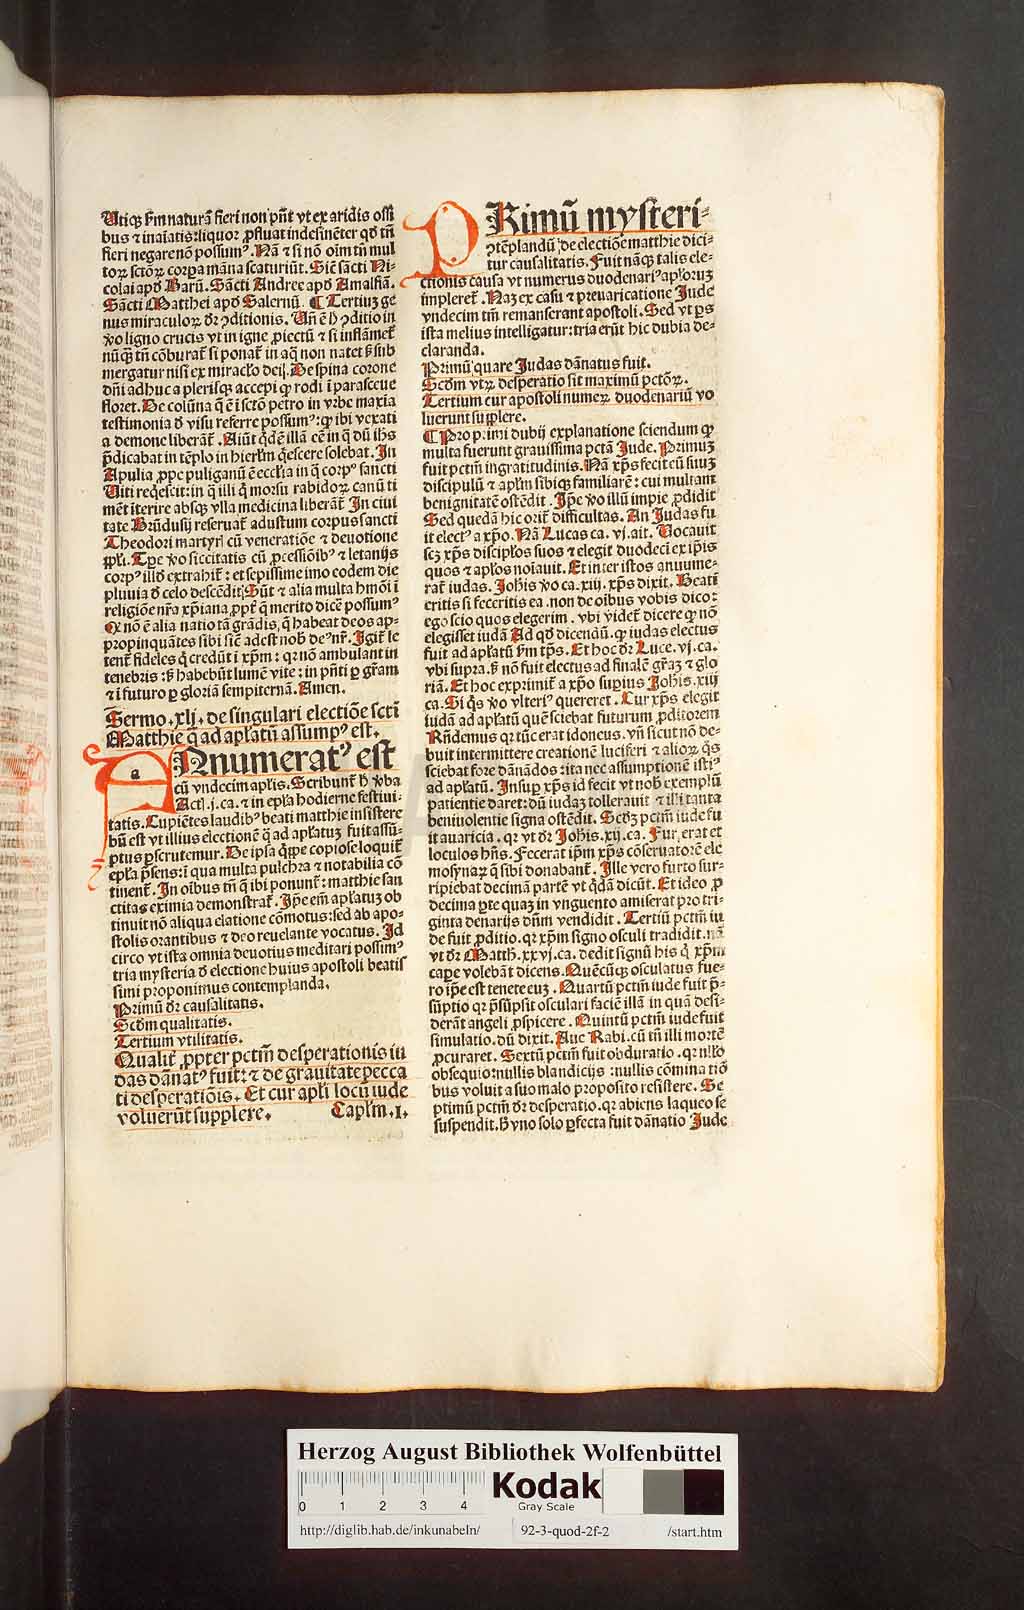 Utiqꝫ ẜm naturã fieri non pñt vt ex aridis ossi
bus ⁊ inaĩatis: liquor ꝓfluat indesinẽter qď tñ
fieri negare nõ possumꝰ. Nã ⁊ si nõ oĩm tñ mul
toꝝ sctõꝝ corpa mãna scaturiũt. Sic̃ sãcti Ni-
colai apď Barũ. Sãcti Andree apď Amalfiã.
Sãcti Matthei apď Salernũ. ¶ Tertiuꝫ ge
nus miraculoꝝ dr̃ ↄditionis. Uñ ẽ h̃ ↄditio in
ꝟo ligno crucis vt in igne ꝓiectũ ⁊ si inflãmet̃
nũqꝫ tñ cõburat̃ si ponat̃ in aq̃ non natet sꝫ sub
mergatur nisi ex miracl̃o dei. De spina corone
dñi adhuc a plerisqꝫ accepi ꝙ rodi ĩ parasceue
floret. De colũna q̃ ẽ ĩ sctõ petro in vrbe maxia
testimonia ď visu referre possumꝰ: ꝙ ibi vexati
a demone liberãt̃. Aiũt qďẽ illã eẽ in q̃ dũ ihs̃
p̃dicabat in tẽplo in hierlm̃ q̃escere solebat. In
Apulia ꝓpe puliganũ ẽ eccl̃ia in q̃ corpꝰ sancti
Uiti req̃scit: in q̃ illi q̃ morsu rabidoꝝ canũ ti
mẽt iterire absqꝫ vlla medicina liberãt̃. In ciui
tate Brũdusij reseruat̃ adustum corpus sancti
Theodori martyrl cũ veneratiõe ⁊ deuotione
ppl̃i. Tp̃e ꝟo siccitatis cũ ꝓcessiõibꝰ ⁊ letanijs
corpꝰ illď extrahit̃: et sepissime imo eodem die
pluuia ď celo descẽdit. Sũt ⁊ alia multa hm̃õi ĩ
religiõe nr̃a xp̃iana ꝓpt̃ q̃ merito dicẽ possumꝰ
Q̃ nõ ẽ alia natio tã grãdis, q̃ habeat deos ap-
propinquãtes sibi sic̃ adest nob̃ deꝰ nr̃. Igit̃ le
tent̃ fideles q̃ credũt ĩ xp̃m: qꝛ nõ ambulant in
tenebris: sꝫ habebũt lumẽ vite: in pñti ꝑ gr̃am
⁊ ĩ futuro ꝑ gloriã sempiternã. Amen.
Sermo .xlj. de singulari electiõe sctĩ
Matthie q̃ ad apl̃atũ assumpꝰ est.
ANnumeratꝰ est
cũ vndecim apl̃is. Scribunt̃ h̃ ꝟba
Act̃. j. ca. ⁊ in epl̃a hodierne festiui-
tatis. Cupiẽtes laudibꝰ beati matthie insistere
bũ est vt illius electionẽ q̃ ad apl̃atuꝫ fuit assũ-
ptus ꝑscrutemur. De ipsa q̃ꝑpe copiose loquit̃
epl̃a p̃sens: ĩ qua multa pulchra ⁊ notabilia cõ
tinent̃. In oĩbus tñ q̃ ibi ponunt̃: matthie san
ctitas eximia demonstrat̃. Ip̃e em̃ apl̃atuꝫ ob
tinuit nõ aliqua elatione cõmotus: sed ab apo-
stolis orantibus ⁊ deo reuelante vocatus. Id
circo vt ista omnia deuotius meditari possimꝰ
tria mysteria ď electione huius apostoli beatis
simi proponimus contemplanda.
Primũ dr̃ causalitatis.
Scďm qualitatis.
Tertium vtilitatis.
Qualit̃ ꝓpter pctm̃ desperationis iu
das dãnatꝰ fuit: ⁊ de grauitate pecca
ti desperatiõis. Et cur apl̃i locũ iude
voluerũt supplere. Capl̃m .I.
PRimũ mysteri-
ↄtẽplandũ de electiõe matthie dici-
tur causalitatis. Fuit nãqꝫ talis ele-
ctionis causa vt numerus duodenariꝰ apl̃oruꝫ
impleret̃. Naꝫ ex casu ⁊ preuaricatione Jude
vndecim tm̃ remanserant apostoli. Sed vt p̃s
ista melius intelligatur: tria erũt hic dubia de-
claranda.
Primũ quare Judas dãnatus fuit.
Scďm vtꝝ desperatio sit maximũ pctõꝝ.
Tertium cur apostoli numeꝝ duodenariũ vo
luerunt supplere.
¶ Pro primi dubij explanatione sciendum ꝙ
multa fuerunt grauissima pctã Jude. Primuꝫ
fuit pctm̃ ingratitudinis. Nã xp̃s fecit eũ suuꝫ
discipulũ ⁊ apl̃m sibiqꝫ familiarẽ: cui multam
benignitatẽ ostẽdit. Ip̃e ꝟo illũ impie ꝓdidit
Sed quedã hic orit̃ difficultas. An Judas fu
it electꝰ a xp̃o. Nã Lucas ca. vj. ait. Uocauit
scꝫ xp̃s discipl̃os suos ⁊ elegit duodecĩ ex ip̃is
quos ⁊ apl̃os noĩauit. Et inter istos ãnume-
rat̃ iudas. Joh̃is ꝟo ca. xiij. xp̃s dixit. Beati
eritis si feceritis ea. non de oĩbus vobis dico:
ego scio quos elegerim. vbi videt̃ dicere ꝙ nõ
elegisset iudã Ad qď dicendũ. ꝙ iudas electus
fuit ad apl̃atũ ẜm tp̃s. Et hoc dr̃ Luce. vj. ca.
vbi supra. sꝫ nõ fuit electus ad finalẽ gr̃aꝫ ⁊ glo
riã. Et hoc exprimit̃ a xp̃o supius Joh̃is. xiij
ca. Si q̃s ꝟo vlteriꝰ quereret. Cur xp̃s elegit
iudã ad apl̃atũ quẽ sciebat futurum ꝓditorem
Rñdemus qꝛ tũc erat idoneus. vñ sicut nõ de-
buit intermittere creationẽ luciferi ⁊ alioꝝ q̃s
sciebat fore dãnãdos: ita nec assumptionẽ istiꝰ
ad apl̃atũ. Insuꝑ xp̃s id fecit vt nob̃ exemplũ
patientie daret: dũ iudaꝫ tollerauit ⁊ illi tanta
beniuolentie signa ostẽdit. Scďꝫ pctm̃ iude fu
it auaricia. qꝛ vt dr̃ Joh̃is. xij. ca. Fur erat et
loculos hñs. Fecerat ip̃m xp̃s cõseruatorẽ ele
mosynaꝝ q̃ sibi donabant̃. Ille vero furto sur-
ripiebat decimã partẽ vt q̃dã dicũt. Et ideo ꝓ
decima ꝑte quaꝫ in vnguento amiserat pro tri-
ginta denarijs dñm vendidit. Tertiũ pctm̃ iu
de fuit ꝓditio. qꝛ xp̃m signo osculi tradidit. nã
vt dr̃ Matth̃. xxvj. ca. dedit signũ his q̃ xp̃m
cape volebãt dicens. Quẽcũqꝫ osculatus fue-
ro ip̃e est tenete euꝫ. Quartũ pctm̃ iude fuit p̃-
sũptio qꝛ p̃sũpsit osculari faciẽ illã in quã desi-
derãt angeli ꝓspicere. Quintũ pctm̃ iude fuit
simulatio. dũ dixit. Aue Rabi. cũ tñ illi mortẽ
ꝓcuraret. Sextũ pctm̃ fuit obduratio. qꝛ nl̃lo
obsequio: nullis blandicijs: nullis cõmina tiõ
bus voluit a suo malo proposito resistere. Se
ptimũ pctm̃ dr̃ desperatio. qꝛ abiens laqueo se
suspendit. sꝫ vno solo ꝑfecta fuit dãnatio Jude
Herzog August Bibliothek Wolfenbüttel
0 1 2 3 4
Kodak
Gray Scale
http://diglib.hab.de/inkunabeln/ 92-3-quod-2f-2 /start.htm